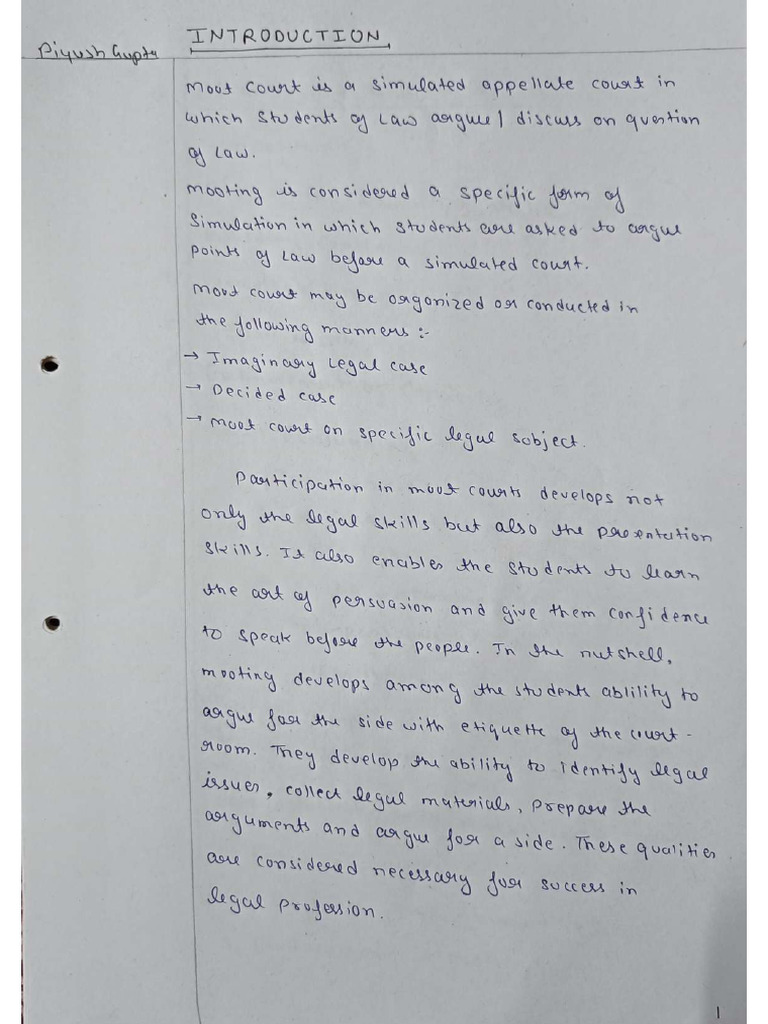 INTRODUCTION
Piyush Gupta
Moot Court is a simulated appellate court in
which students of Law argue/discuss on question
of Law.
Mooting is considered a specific form of
Simulation in which students are asked to argue
points of Law before a simulated court.
Moot court may be organized or conducted in
the following manners :-
→ Imaginary Legal case
→ Decided case
→ Moot court on specific legal subject.
Participation in moot courts develops not
only the legal skills but also the presentation
skills. It also enables the students to learn
the art of persuasion and give them confidence
to speak before the people. In the nutshell,
mooting develops among the students ablility to
argue for the side with etiquette of the court-
room. They develop the ability to identify legal
issues, collect legal materials, prepare the
arguments and argue for a side. These qualities
are considered necessary for success in
legal profession.
1